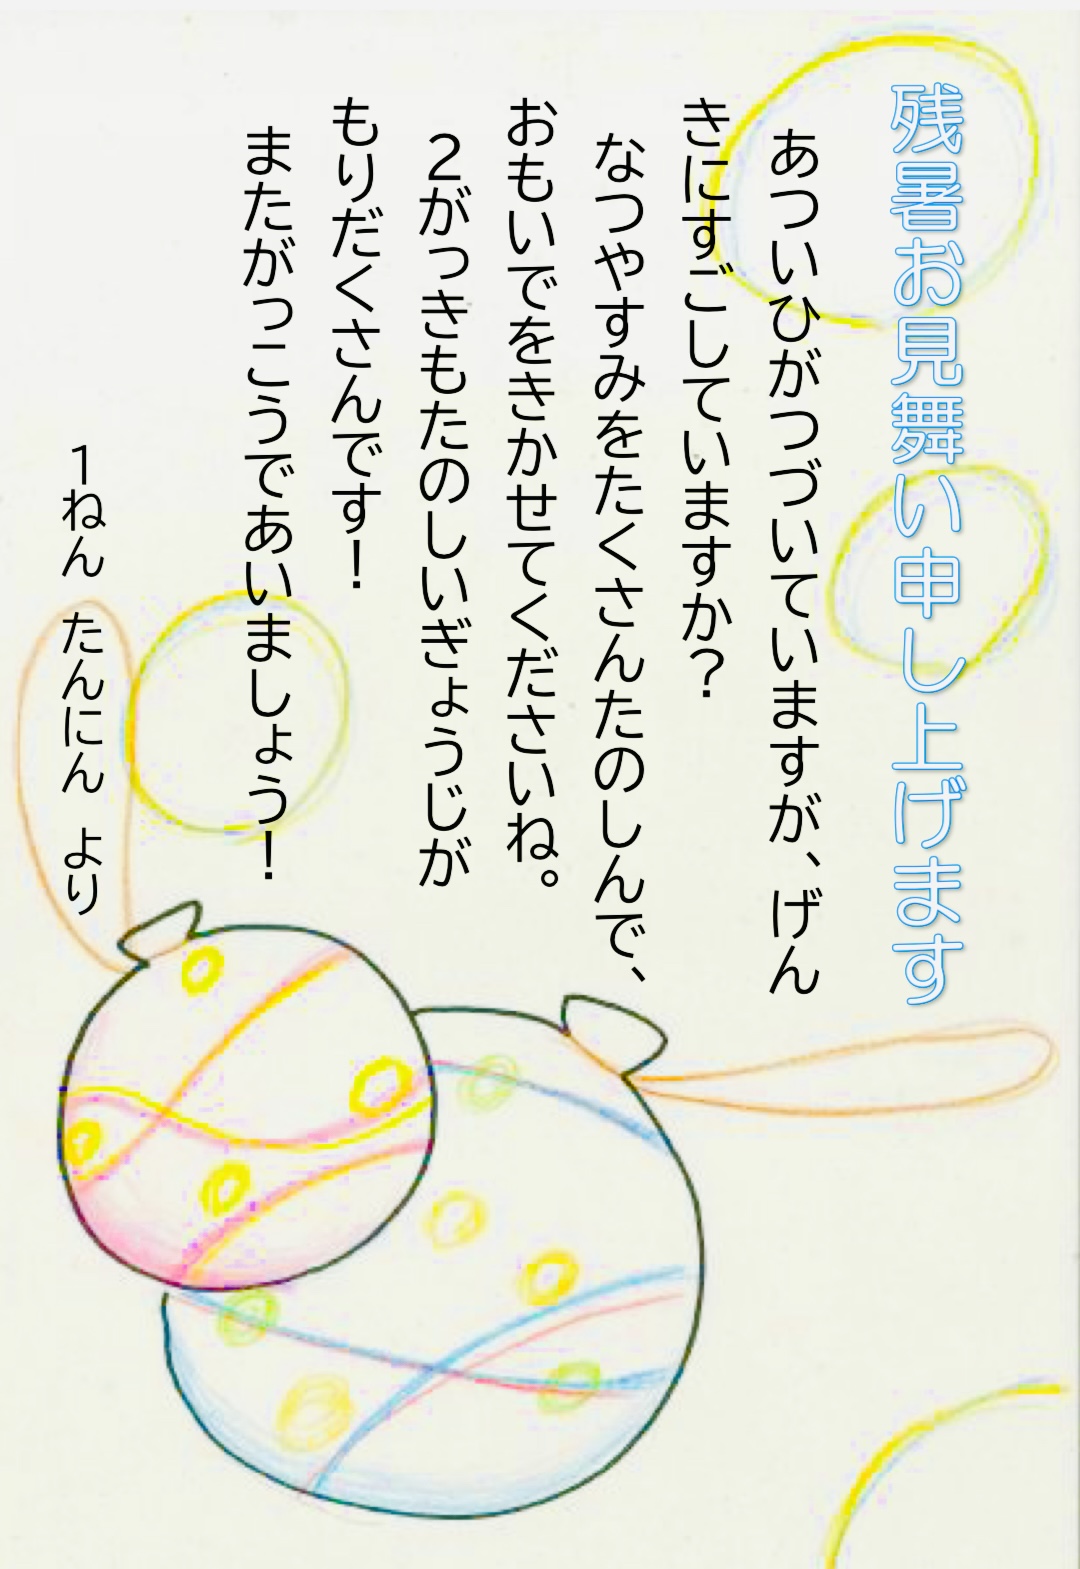 残暑お見舞い申し上げます
あついひがつづいていますが、げん
きにすごしていますか？
なつやすみをたくさんたのしんで、
おもいでをきかせてくださいね。
２がっきもたのしいぎょうじが
もりだくさんです！
またがっこうであいましょう！
１ねん たんにん より